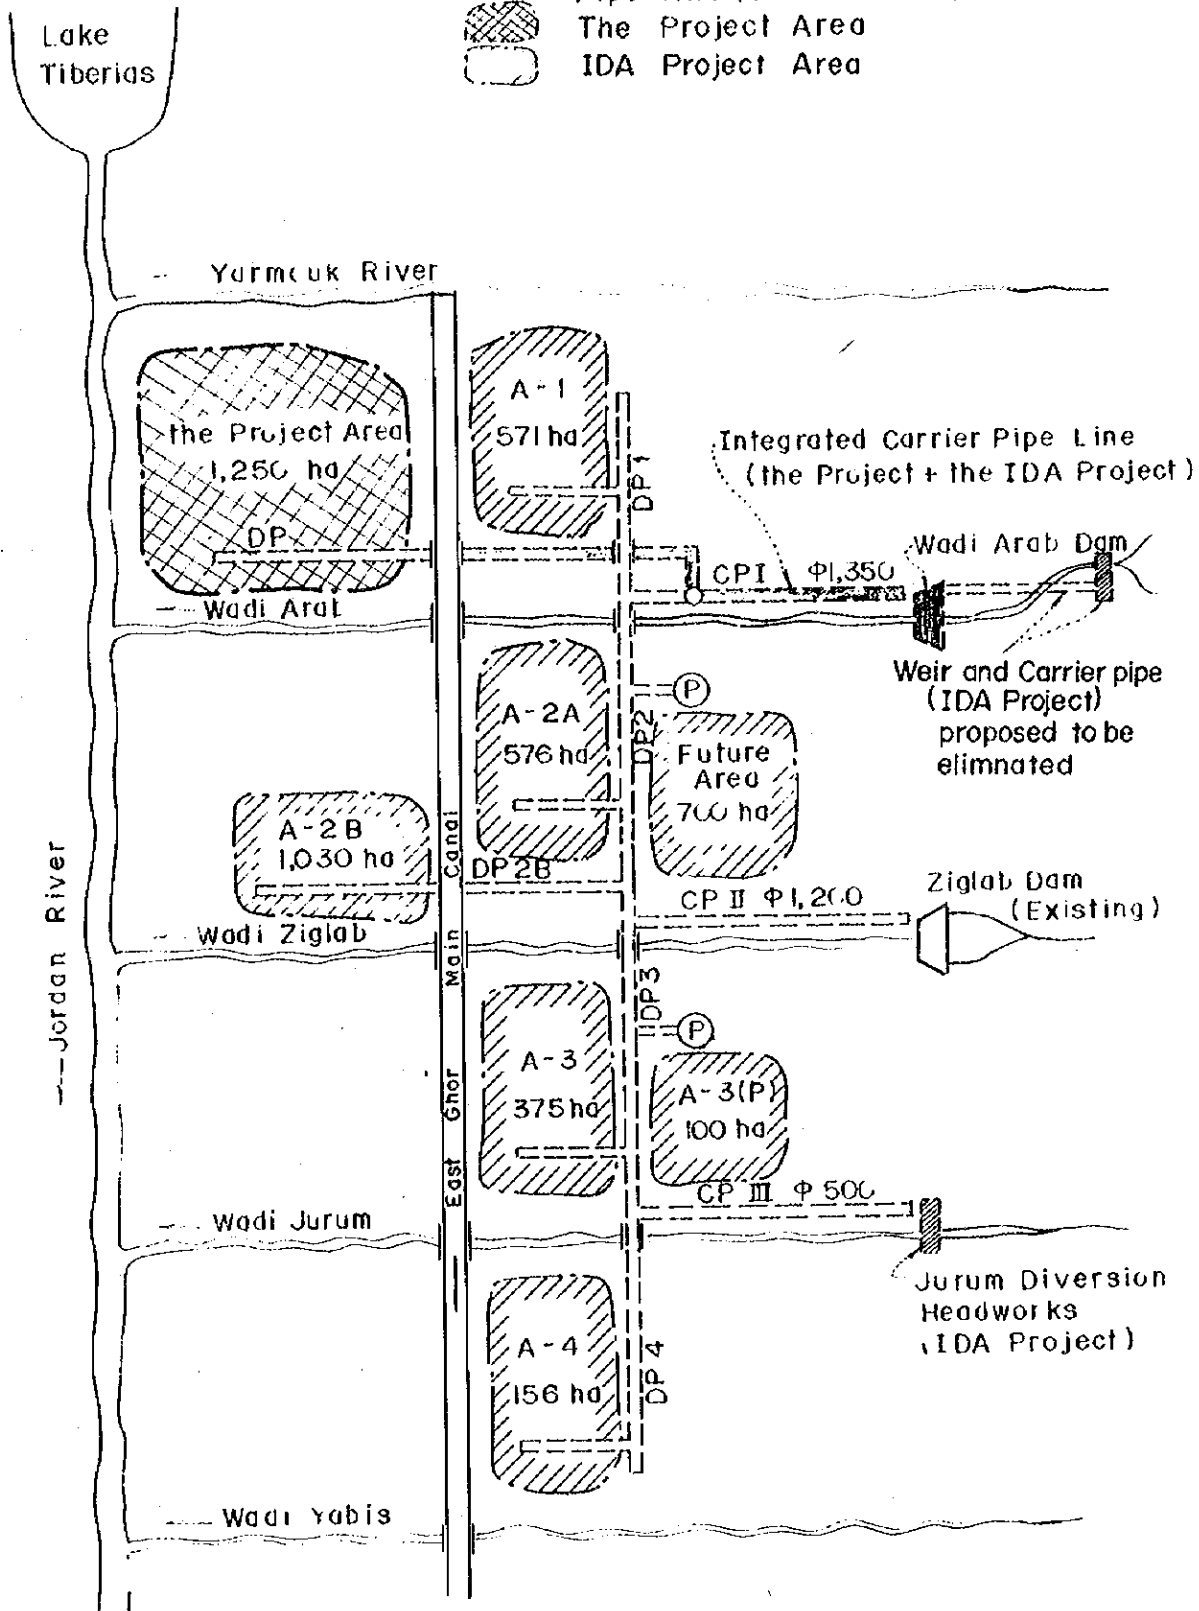 The Project Area
IDA Project Area
Lake
Tiberias
Yarmouk River
A-1
571 ha
the Project Area
1,250 ha
DP
DP 1
Integrated Carrier Pipe Line
(the Project + the IDA Project)
Wadi Arab Dam
CP I Φ1,350
Wadi Arab
Weir and Carrier pipe
(IDA Project)
proposed to be
elimnated
P
A-2A
576 ha
DP2
Future
Area
700 ha
A-2B
1,030 ha
DP2B
CP II Φ1,200
Ziglab Dam
(Existing)
Wadi Ziglab
Jordan River
East Ghor Main Canal
DP3
P
A-3
375 ha
A-3(P)
100 ha
CP III Φ 500
Wadi Jurum
Jurum Diversion
Headworks
(IDA Project)
A-4
156 ha
DP 4
Wadi Yabis